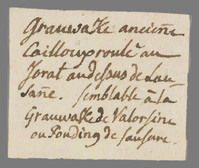 Grauwake ancienne
Cailloux roulé au
Jorat au dessus de Lau-
sane. semblable à la
Grauwake de Valorsine
ou Pouding de Sausure.